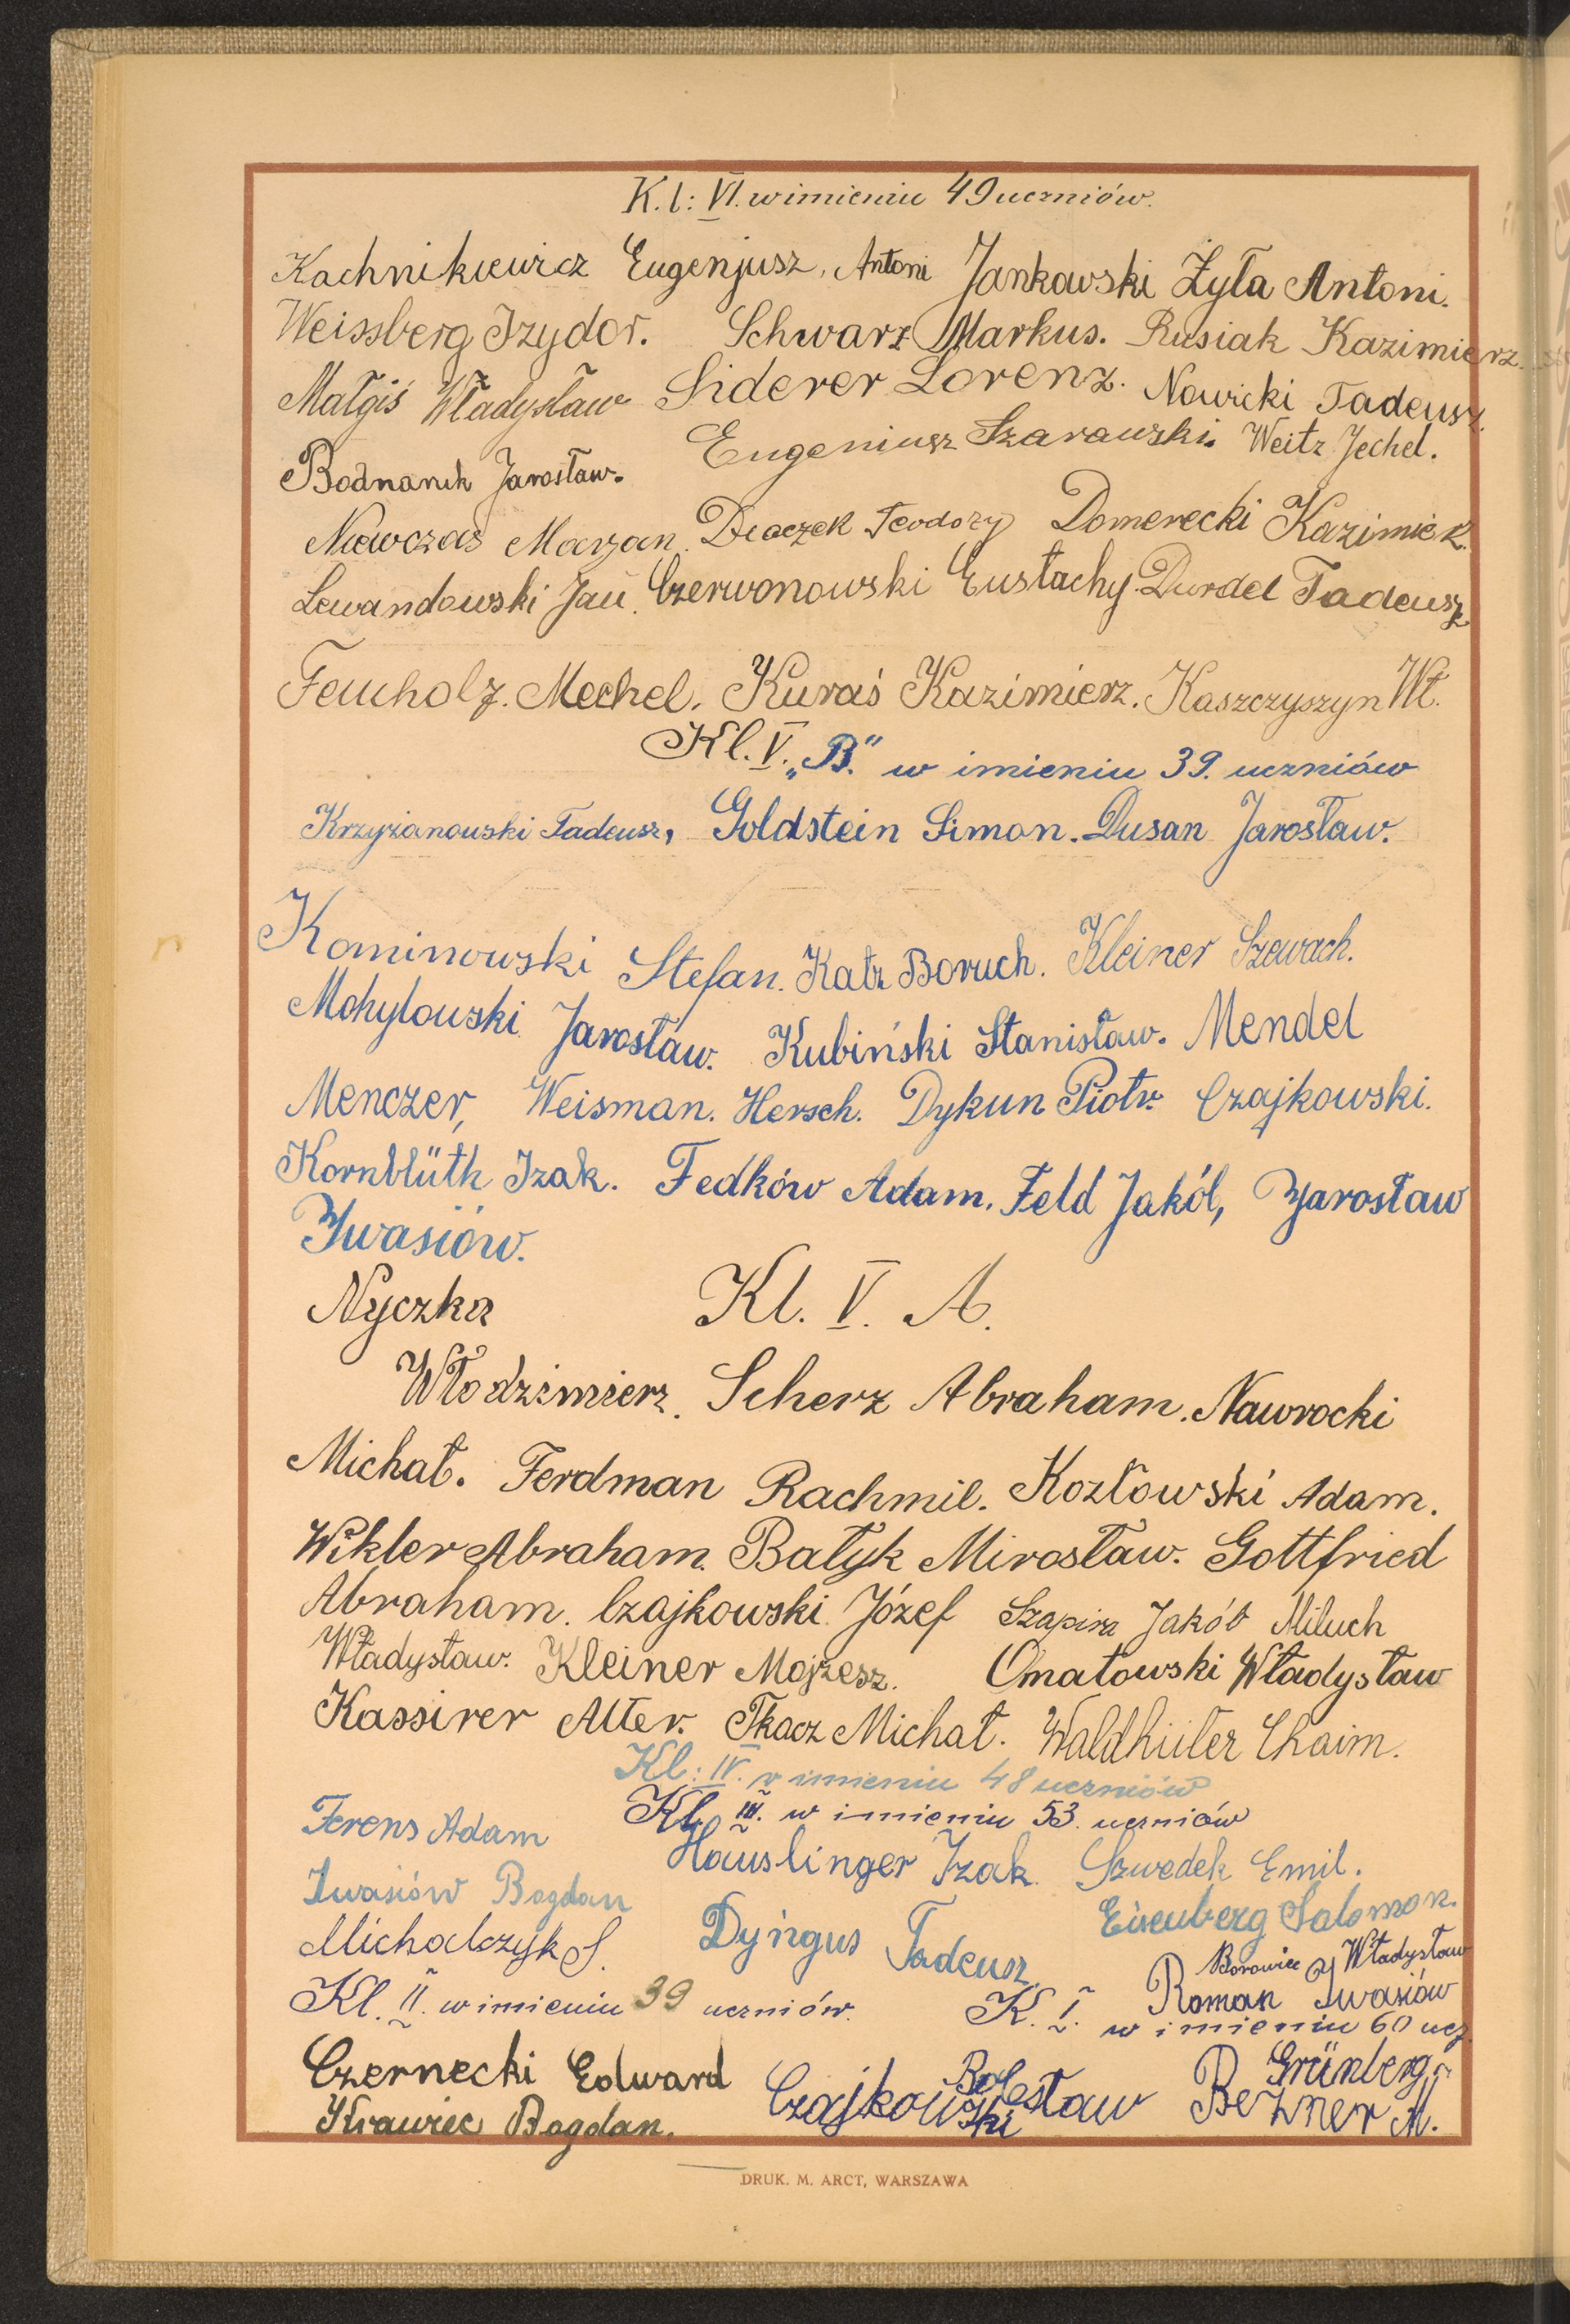 K.l: VI. w imieniu 49 uczniów.
Kachnikiewicz Eugenjusz, Antoni Jankowski Żyła Antoni.
Weissberg Izydor. Schwarz Markus. Rusiak Kazimierz.
Małgiś Władysław Siderer Lorenz. Nawicki Tadeusz.
Bodnaruk Jarosław. Eugeniusz Szarawski. Weitz Jechel.
Niewczas Marjan. Diaczek Teodozy Domerecki Kazimierz.
Lewandowski Jan. Czerwonowski Eustachy. Durdel Tadeusz
Feucholz. Mechel. Kuraś Kazimierz. Kaszczyszyn Wł.
Kl. V. „B." w imieniu 39. uczniów
Krzyżanowski Tadeusz, Goldstein Simon. Dusan Jarosław.
Kominowski Stefan. Katz Boruch. Kleiner Szewach.
Mohylowski Jarosław. Kubiński Stanisław. Mendel
Menczer, Weisman. Hersch. Dykun Piotr. Czajkowski.
Kornblüth Izak. Fedków Adam. Feld Jakób, Yarosław
Ywasiów.
Nyczka Kl. V. A.
Włodzimierz. Scherz Abraham. Nawrocki
Michał. Ferdman Rachmil. Kozłowski Adam.
Wikler Abraham. Bałyk Mirosław. Gottfried
Abraham. Czajkowski Józef Szapira Jakób Miluch
Władysław. Kleiner Mojżesz. Omatowski Władysław
Kassirer Alter. Tkacz Michał. Waldhüter Chaim.
Kl: IV. w imieniu 48 uczniów
Kl. III. w imieniu 53. uczniów
Ferens Adam Hauslinger Izak. Szwedek Emil.
Iwasiów Bogdan Dyngus Tadeusz Eisenberg Salomon.
Michalczyk S. Borowiec Władysław
Roman Iwasiów
Kl. II. w imieniu 39 uczniów. K. I. w imieniu 60 ucz.
Czernecki Edward Czajkowski Bolesław Grünberg
Krawiec Bogdan. Bezner M.
DRUK. M. ARCT, WARSZAWA